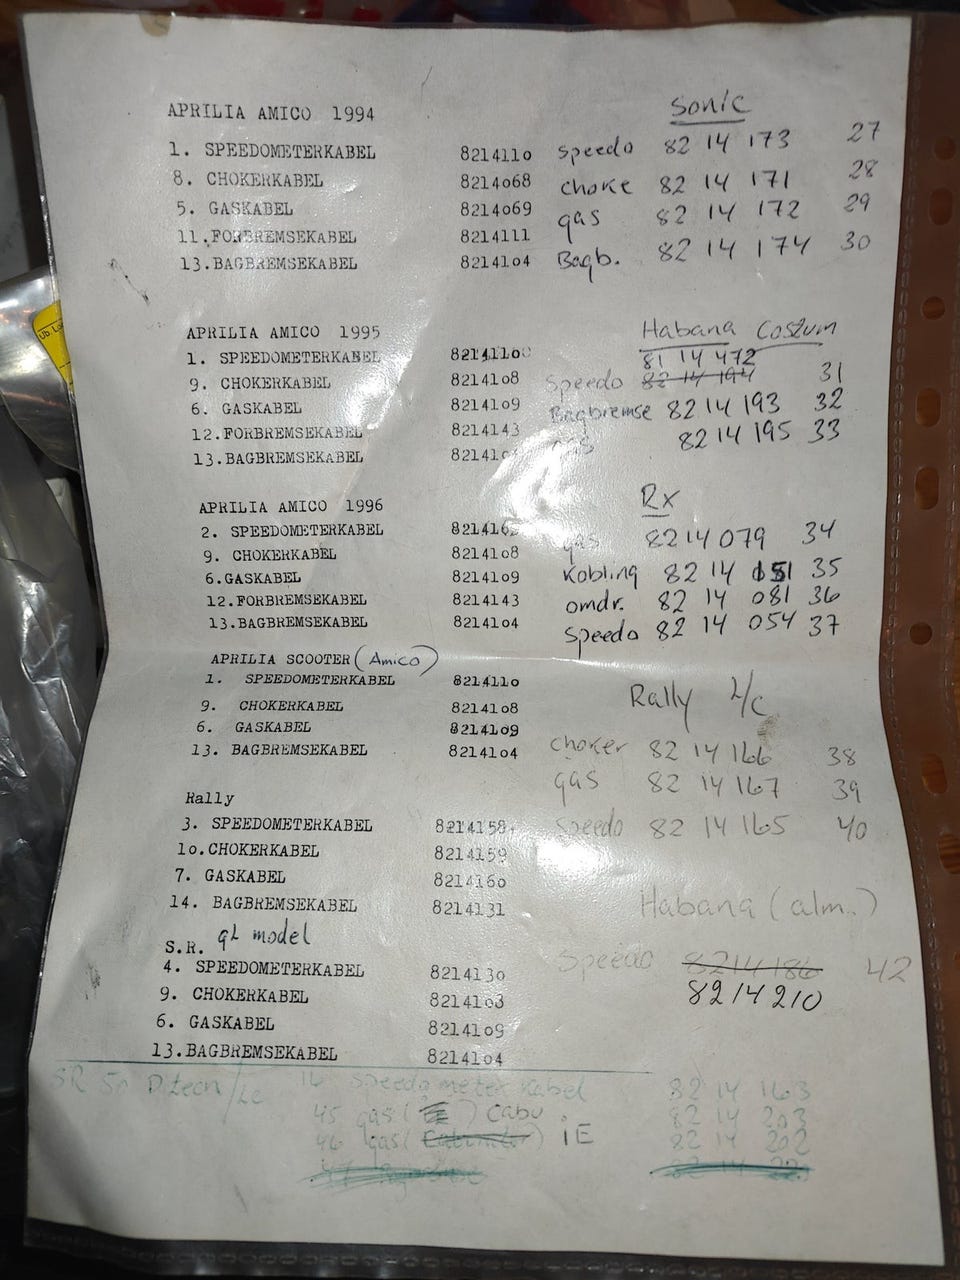 APRILIA AMICO 1994
1. SPEEDOMETERKABEL 8214110
8. CHOKERKABEL 8214068
5. GASKABEL 8214069
11. FORBREMSEKABEL 8214111
13. BAGBREMSEKABEL 8214104
Sonic
speedo 82 14 173 27
choke 82 14 171 28
gas 82 14 172 29
Bagb. 82 14 174 30
APRILIA AMICO 1995
1. SPEEDOMETERKABEL 8214110
9. CHOKERKABEL 8214108
6. GASKABEL 8214109
12. FORBREMSEKABEL 8214143
13. BAGBREMSEKABEL
Habana Costum
81 14 472
Speedo 82 14 194 31
Bagbremse 82 14 193 32
gas 82 14 195 33
APRILIA AMICO 1996
2. SPEEDOMETERKABEL
9. CHOKERKABEL 8214108
6. GASKABEL 8214109
12. FORBREMSEKABEL 8214143
13. BAGBREMSEKABEL 8214104
Rx
gas 82 14 079 34
Kobling 82 14 051 35
omdr. 82 14 081 36
speedo 82 14 054 37
APRILIA SCOOTER (Amico)
1. SPEEDOMETERKABEL 8214110
9. CHOKERKABEL 8214108
6. GASKABEL 8214109
13. BAGBREMSEKABEL 8214104
Rally L/c
choker 82 14 166 38
gas 82 14 167 39
speedo 82 14 165 40
Rally
3. SPEEDOMETERKABEL 8214158
10. CHOKERKABEL 8214159
7. GASKABEL 8214160
14. BAGBREMSEKABEL 8214131
Habana (alm.)
Speedo 8214186 42
8214210
S.R. gL model
4. SPEEDOMETERKABEL 8214130
9. CHOKERKABEL 8214103
6. GASKABEL 8214109
13. BAGBREMSEKABEL 8214104
SR 50 Ditech/Lc 16 Speedometer Kabel 82 14 163
45 gas ( ) Cabu 82 14 203
46 gas ( ) iE 82 14 202